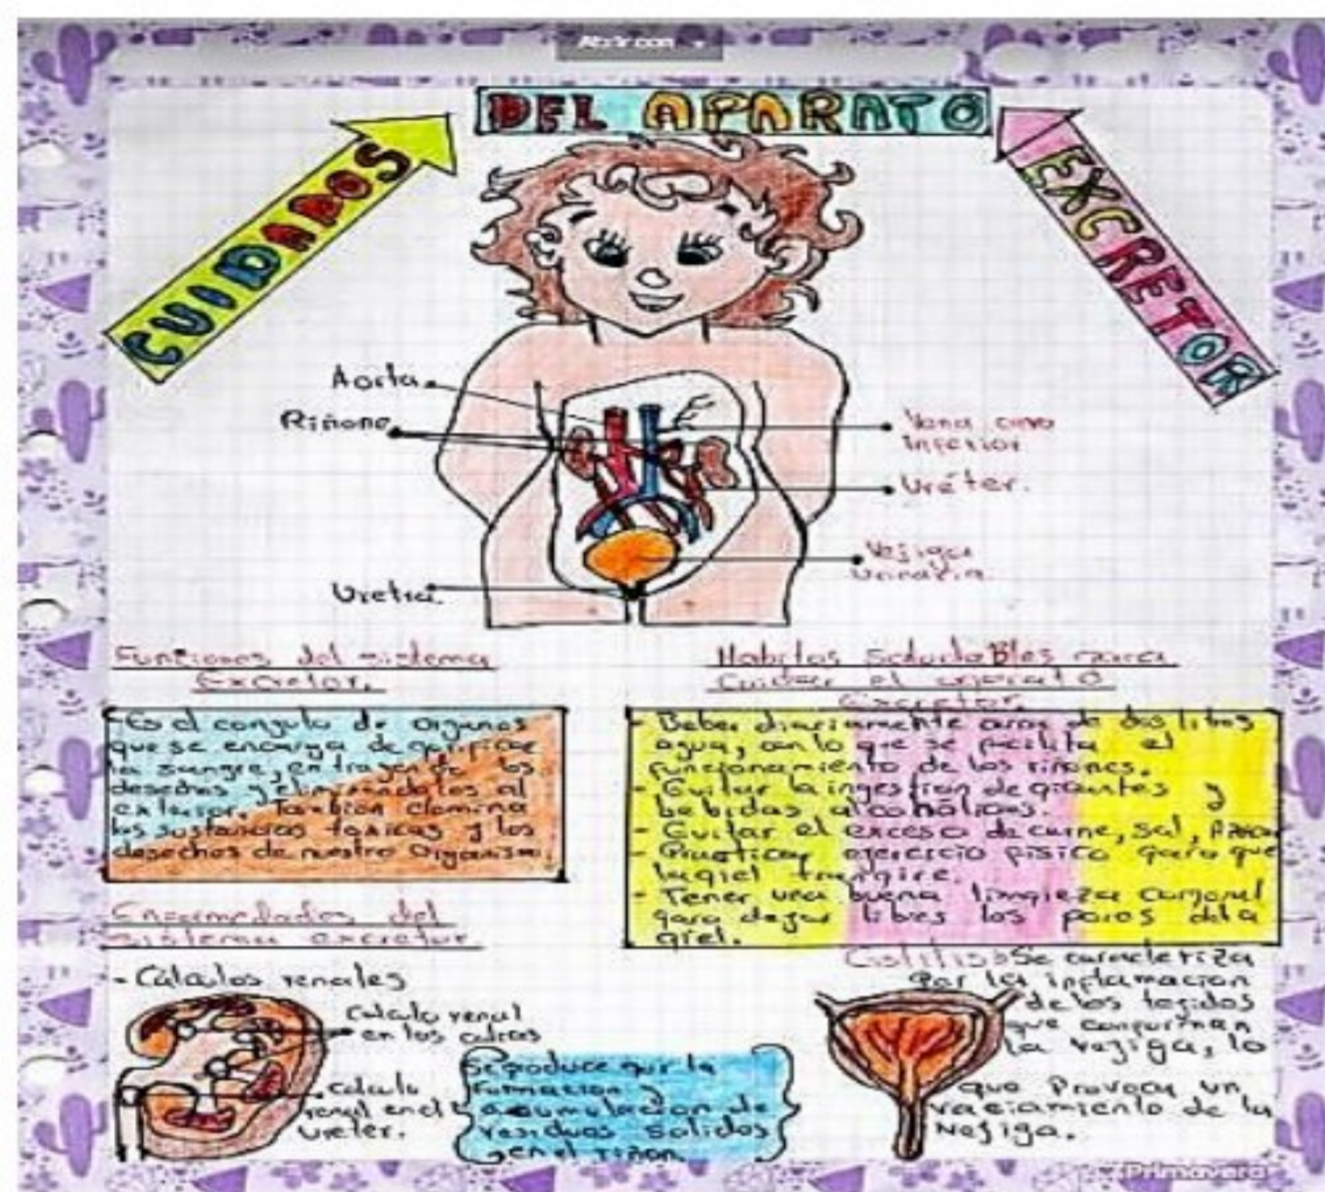 Abrir con
CUIDADOS
DEL APARATO
EXCRETOR
Aorta
Riñone
Vena cava
Inferior
Uréter.
Vejiga
Urinaria
Uretra
Funciones del sistema
Excretor.
-Es el conjuto de organos
que se encarga de purificar
la sangre, los
desechos y eliminandolos al
exterior. Tambien elimina
las sustancias toxicas y los
desechos de nuestro Organismo.
Habitos Saludables para
Cuidar el aparato
Excretor.
- Beber diariamente cerca de dos litros
agua, con lo que se facilita el
funcionamiento de los riñones.
- Evitar la ingestion de picantes y
bebidas alcohólicas.
- Evitar el exceso de carne, sal,
- Practicar ejercicio físico para que
la piel transpire.
- Tener una buena limpieza corporal
para dejar libres los poros de la
piel.
del
sistema excretor
- Cálculos renales
Calculo renal
en los
calculo
renal en el
Ureter.
Se produce por la
formacion y
acumulacion de
residuos solidos
en el riñon.
Cistitis: Se caracteriza
Por la inflamacion
de los tegidos
que conforman
la vejiga, lo
que Provoca un
vaciamiento de la
Vejiga.
Primavera